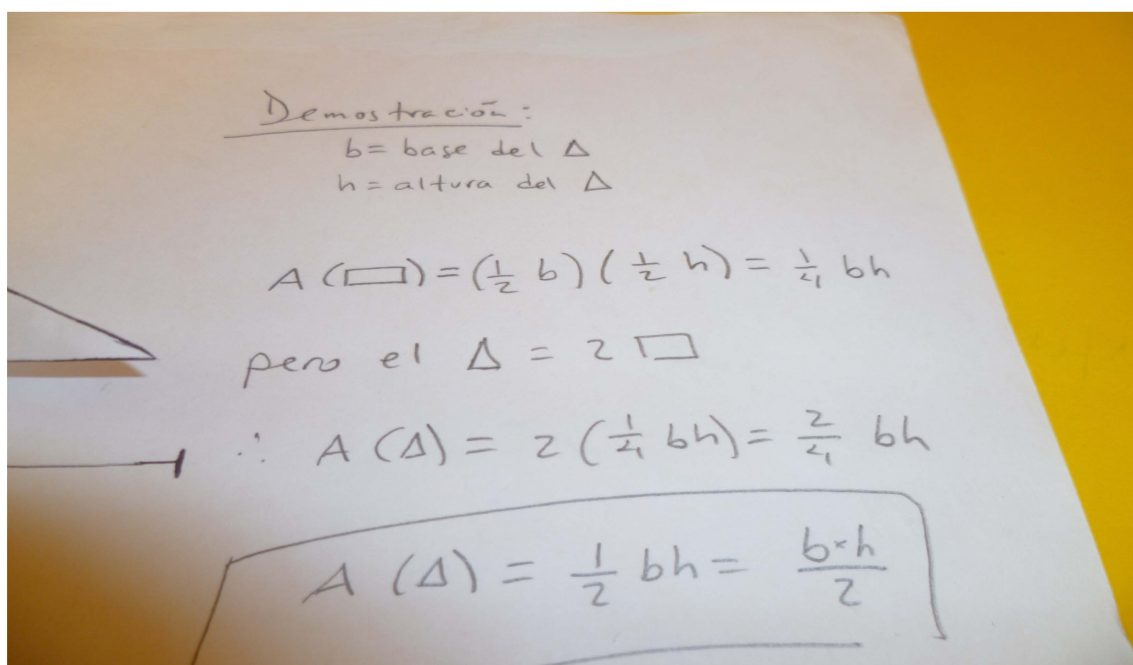 Demostración:
b = base del Δ
h = altura del Δ
A (▭) = (1/2 b) (1/2 h) = 1/4 bh
pero el Δ = 2 ▭
∴ A (Δ) = 2 (1/4 bh) = 2/4 bh
A (Δ) = 1/2 bh = b×h/2